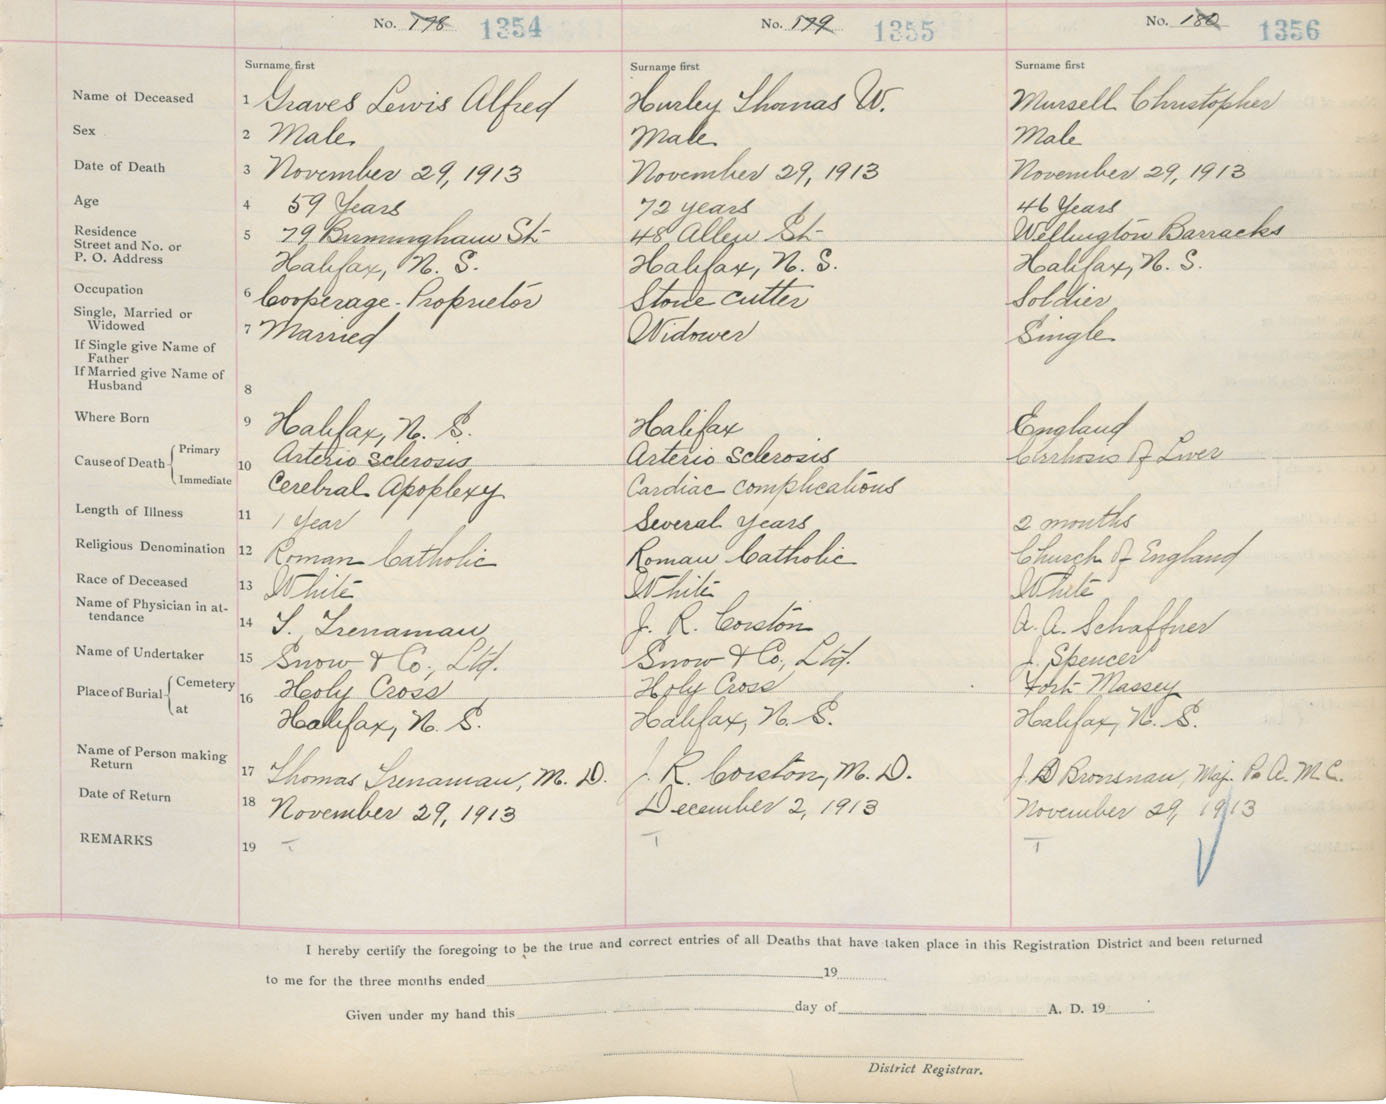 No. 178 1354 No. 179 1355 No. 180 1356
Surname first Surname first Surname first
Name of Deceased 1 Graves Lewis Alfred Hurley Thomas W. Mursell Christopher
Sex 2 Male Male Male
Date of Death 3 November 29, 1913 November 29, 1913 November 29, 1913
Age 4 59 Years 72 years 46 Years
Residence
Street and No. or 5 79 Birmingham St. 48 Allen St. Wellington Barracks
P. O. Address Halifax, N. S. Halifax, N. S. Halifax, N. S.
Occupation 6 Cooperage-Proprietor Stone cutter Soldier
Single, Married or
Widowed 7 Married Widower Single
If Single give Name of
Father
If Married give Name of
Husband 8
Where Born 9 Halifax, N. S. Halifax England
Cause of Death Primary 10 Arterio Sclerosis Arterio Sclerosis Cirrhosis of Liver
Immediate Cerebral Apoplexy Cardiac complications
Length of Illness 11 1 Year Several years 2 months
Religious Denomination 12 Roman Catholic Roman Catholic Church of England
Race of Deceased 13 White White White
Name of Physician in at-
tendance 14 T. Trenaman J. R. Corston A. A. Schaffner
Name of Undertaker 15 Snow & Co., Ltd. Snow & Co., Ltd. J. Spencer
Place of Burial Cemetery 16 Holy Cross Holy Cross Fort Massey
at Halifax, N. S. Halifax, N. S. Halifax, N. S.
Name of Person making
Return 17 Thomas Trenaman, M. D. J. R. Corston, M. D. J. D Bronsnau, Maj. A. M. C.
Date of Return 18 November 29, 1913 December 2, 1913 November 29, 1913
REMARKS 19 T T T
I hereby certify the foregoing to be the true and correct entries of all Deaths that have taken place in this Registration District and been returned
to me for the three months ended 19
Given under my hand this day of A. D. 19
District Registrar.